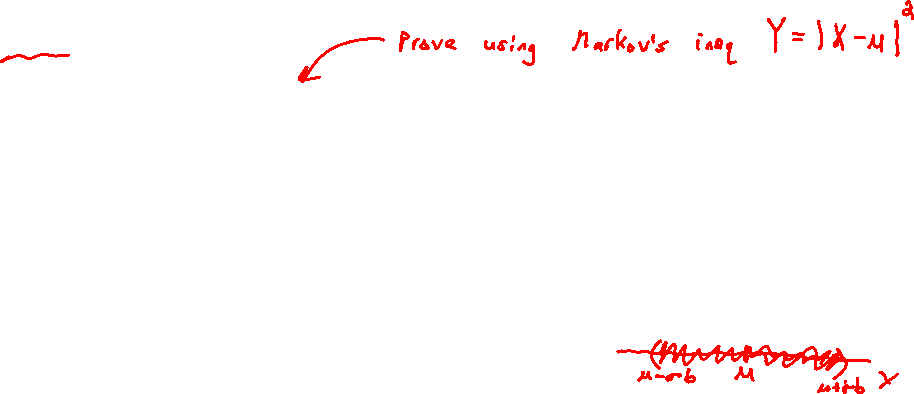 Prove using Markov's ineq Y = |X - μ|²
μ-σb μ μ+σb X